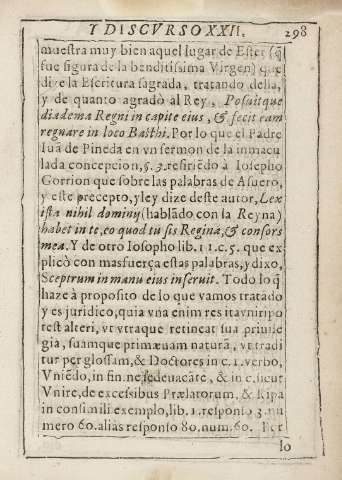 Y DISCVRSO XXII. 298
muestra muy bien aquel lugar de Ester (q̃
fue figura de la benditissima Virgen) que
dize la Escritura sagrada, tratando della,
y de quanto agradò al Rey, Posuitque
diadema Regni in capite eius, & fecit eam
regnare in loco Basthi. Por lo que el Padre
Iuã de Pineda en vn sermon de la inmacu
lada concepcion, §. 3. refiriẽdo à Iosepho
Gorrion que sobre las palabras de Asuero,
y este precepto, y ley dize deste autor, Lex
ista nihil dominy (hablãdo con la Reyna)
habet in te, eo quod tu sis Regina, & consors
mea. Y de otro Iosopho lib. 11. c. 5. que ex
plicò con mas fuerça estas palabras, y dixo,
Sceptrum in manu eius inseruit. Todo lo q̃
haze à proposito de lo que vamos tratado
y es juridico, quia vna enim res ita vniri po
test alteri, vt vtraque retineat sua priuile
gia, suamque primæuam naturã, vt tradi
tur per glossam, & Doctores in c. 1. verbo,
Vniẽdo, in fin. ne sede vacãte, & in c. sicut
Vnire, de excessibus Prælatorum, & Ripa
in consimili exemplo, lib. 1. responso 3. nu
mero 60. alias responso 80. num. 60. Per
Io